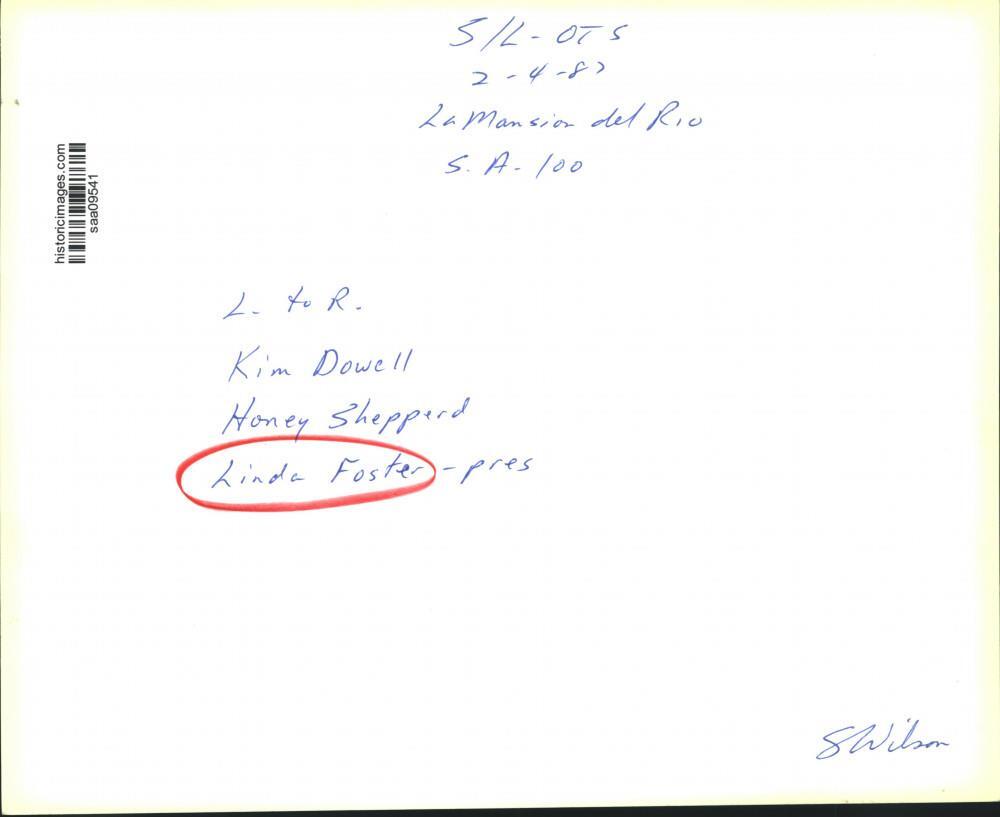 S/L - OTS
2-4-87
La Mansion del Rio
S.A.-100
historicimages.com
saa09541
L. to R.
Kim Dowell
Honey Shepperd
Linda Foster - pres
SWilson